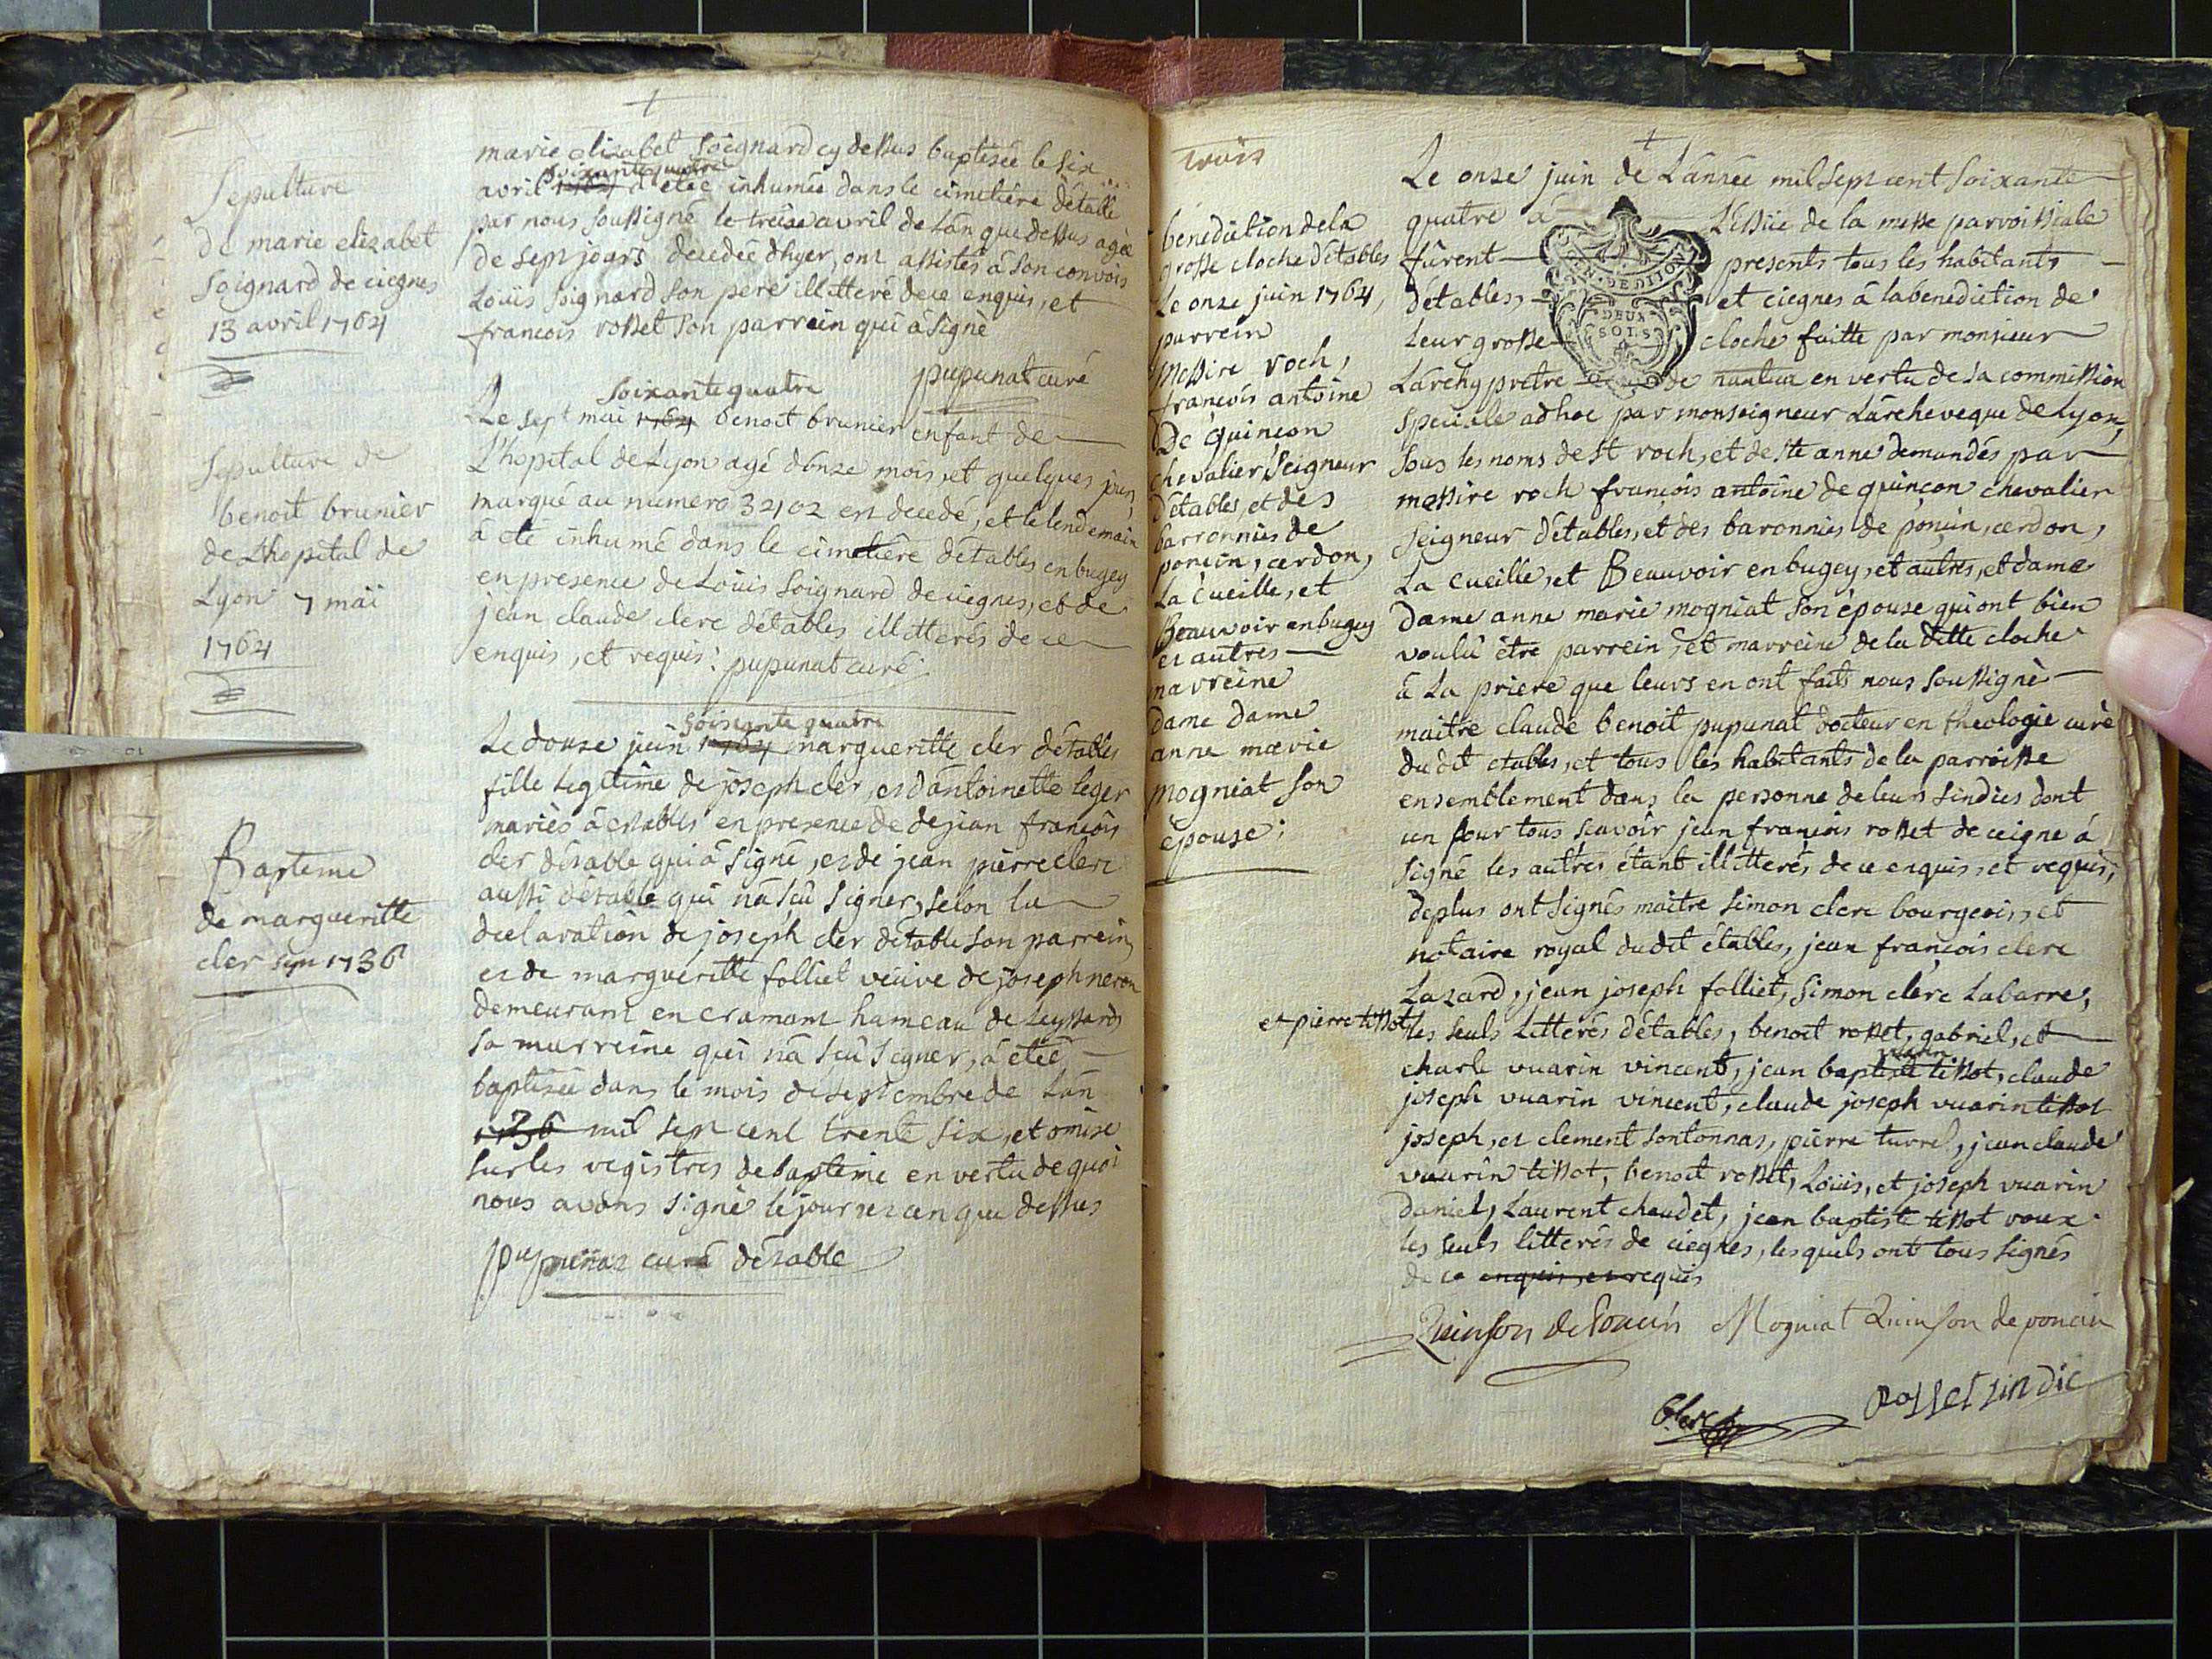 Sepulture
de marie elizabet
soignard de ciegnes
13 avril 1764
marie elizabet soignard cy dessus baptisée le six
soixante quatre
avril 1764 à étée inhumée dans le cimetiére détable
par nous soussigné le treise avril de lân que dessus agée
de sept jours decedée dhyer, ont assistés â son convois
Loüis soignard son pere illitteré de ce enquis, et
francois rosset son parrein qui â signè
pupunat curé
Sepulture de
benoit brunier
de Lhopital de
Lyon 7 mai
1764
soixante quatre
Le sept mai 1764 benoit brunier enfant de
L'hopital de Lyon agé dônze mois, et quelques jours
marqué au numero 32102 est decedé, et le lendemain
â été inhumé dans le cimetiêre détables en bugey
en presence de Loüis soignard de ciegnes, et de
jean claude clerc détables illitterés de ce
enquis, et requis: pupunat curé
Bapteme
de margueritte
cler sept 1736
soixante quatre
Le douse juin 1764 margueritte cler détables
fille legitime de joseph cler, et dântoinette leger
mariès â estables en presence de de jean francois
cler détable qui â signé, et de jean pierre clerc
aussi détable qui nâ sçû signer, selon la
declaration de joseph cler détable son parrein,
et de margueritte folliet veuive de joseph neron
demeurant en cramant hameau de Leyssards
sa marreine qui nâ sçû signer, â étée
baptisée dans le mois de septembre de Lân
1736 mil sept cent trente six, et omise
sur les registres de bapteme en vertu de quoi
nous avons signè le jour et an que dessus
pupunat curé détable
trois
benediction de la
grosse cloche détables
Le onze juin 1764,
parrein
Messire roch,
francois antoine
De quincon
chevalier seigneur
détables, et des
barronnies de
poncin, cerdon,
La cueille, et
Beauvoir en bugey
et autres
marreine
dame dame
anne marie
mogniat son
épouse;
Le onze juin de Lânnée mil sept cent soixante
quatre â L'éssüe de la messe parroissiale
fûrent presents tous les habitants
détables, et ciegnes â la benediction de
Leur grosse cloche faitte par monsieur
GEN. DE DIJON
DEUX
SOLS
Lârchyprêtre de nantua en vertu de sa commission
speciale ad hoc par monseigneur Lârcheveque de Lyon,
sous les noms de st roch, et de ste anne demandés par
messire roch francois antoine de quinçon chevalier
seigneur détables, et des baronnies de poncin, cerdon,
La cueille, et Beauvoir en bugey, et autres, et dame
dame anne marie mogniat son épouse qui ont bien
voulû être parrein, et marreine de la ditte cloche
â La priere que leurs en ont faits nous soussignè
maitre claude benoit pupunat docteur en theologie curè
du dit etables, et tous les habitants de la parroisse
ensemblement dans la personne de leurs sindics dont
un pour tous sçavoir jean francois rosset de ceigne â
signé les autres étant illitterés de ce enquis, et requis,
deplus ont signés maitre simon clerc bourgeois, et
notaire royal du dit étables, jean francois clerc
Lazard, jean joseph folliet, simon clerc Labarre,
et pierre tissot
les seuls litterés détables, benoit rosset, gabriel, et
vuarin
charle vuarin vincent, jean baptiste tissot, claude
joseph vuarin vincent, claude joseph vuarin tissot
joseph, et clement sontonnas, pierre turrel, jean claude
vuarin tissot, benoit rosset, Loüis, et joseph vuarin
daniel, Laurent chaudet, jean baptiste tissot voux
les seuls litterés de ciegnes, lesquels ont tous signés
de ce enquis, et requis
Quinson de Poncin Mogniat Quinson de poncin
Clerc
Rosset sindic